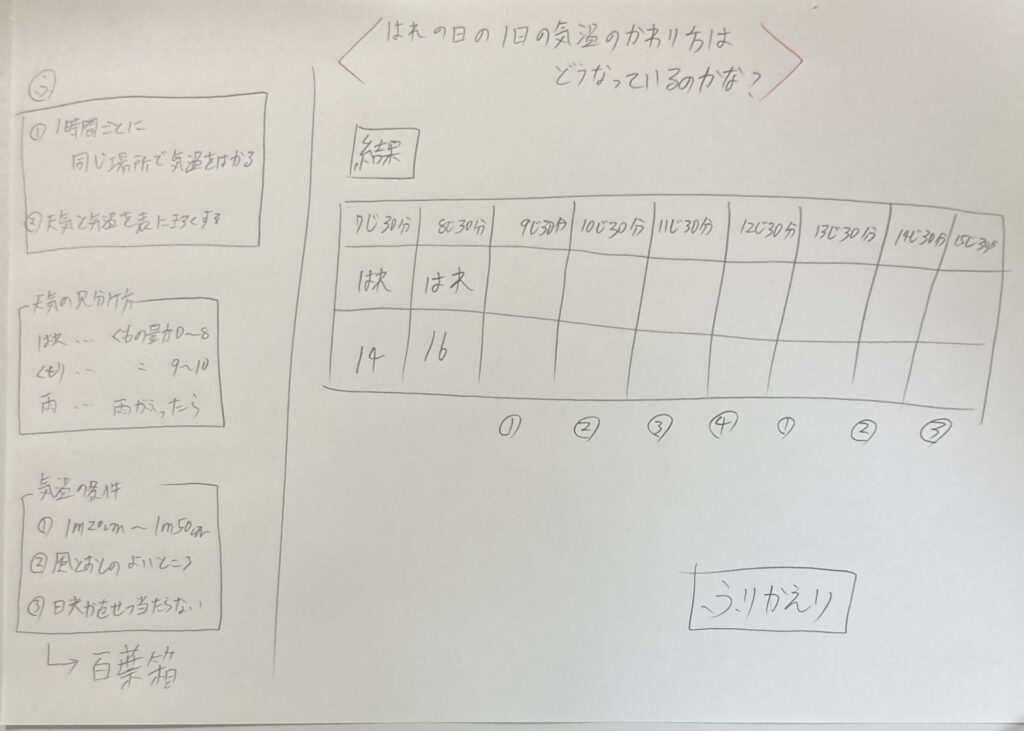 はれの日の1日の気温のかわり方は
どうなっているのかな?
①1時間ごとに
同じ場所で気温をはかる
②天気と気温を表にきろくする
天気の見分け方
はれ… くもの量が0～8
くもり… 〃 9～10
雨… 雨がふったら
気温の条件
①1m20cm～1m50cm
②風とおしのよいところ
③日光が直せつ当たらない
→百葉箱
結果
7じ30分 8じ30分 9じ30分 10じ30分 11じ30分 12じ30分 13じ30分 14じ30分 15じ30分
はれ はれ
14 16
① ② ③ ④ ① ② ③
ふりかえり